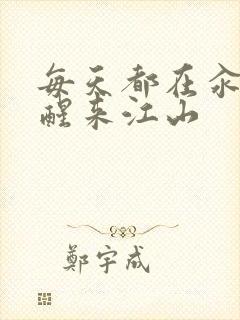 每天都在汆
醒来江山
鄭宇成